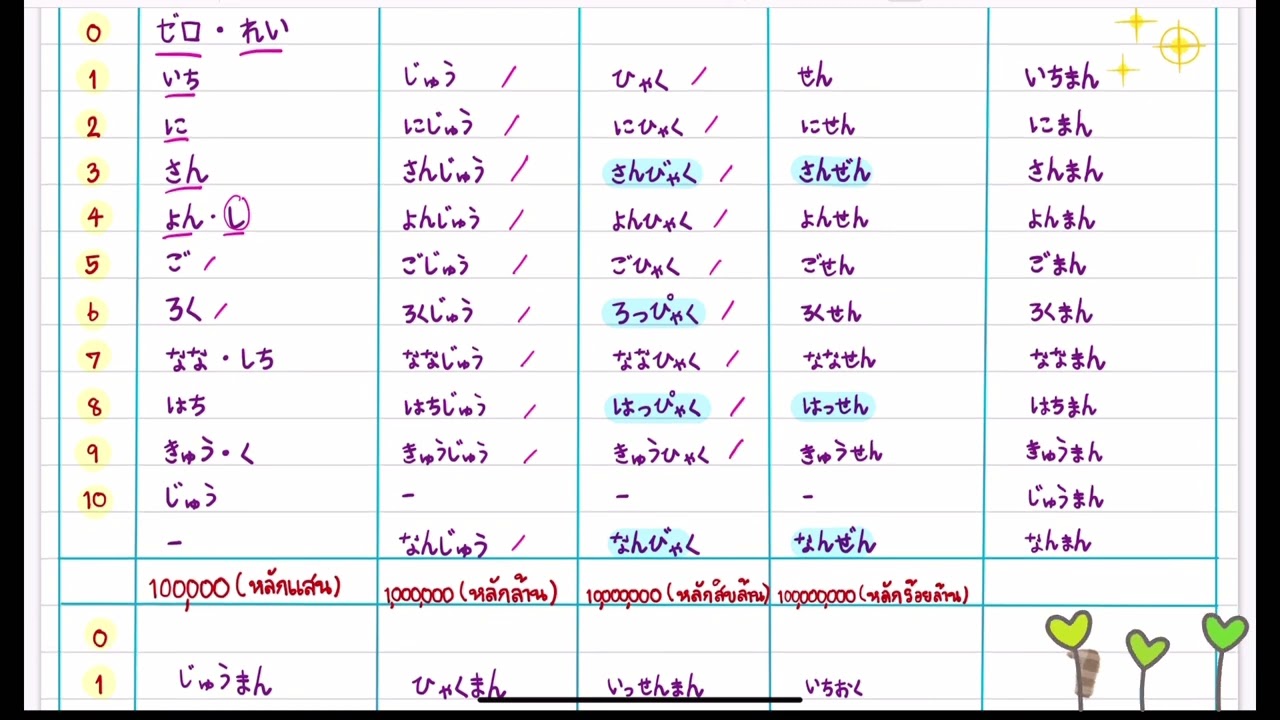 0 ゼロ・れい
1 いち じゅう / ひゃく / せん いちまん
2 に にじゅう / にひゃく / にせん にまん
3 さん さんじゅう / さんびゃく / さんぜん さんまん
4 よん・し よんじゅう / よんひゃく / よんせん よんまん
5 ご / ごじゅう / ごひゃく / ごせん ごまん
6 ろく / ろくじゅう / ろっぴゃく / ろくせん ろくまん
7 なな・しち ななじゅう / ななひゃく / ななせん ななまん
8 はち はちじゅう / はっぴゃく / はっせん はちまん
9 きゅう・く きゅうじゅう / きゅうひゃく / きゅうせん きゅうまん
10 じゅう - - - じゅうまん
- なんじゅう / なんびゃく なんぜん なんまん
100,000 (หลักแสน) 1,000,000 (หลักล้าน) 10,000,000 (หลักสิบล้าน) 100,000,000 (หลักร้อยล้าน)
0
1 じゅうまん ひゃくまん いっせんまん いちおく